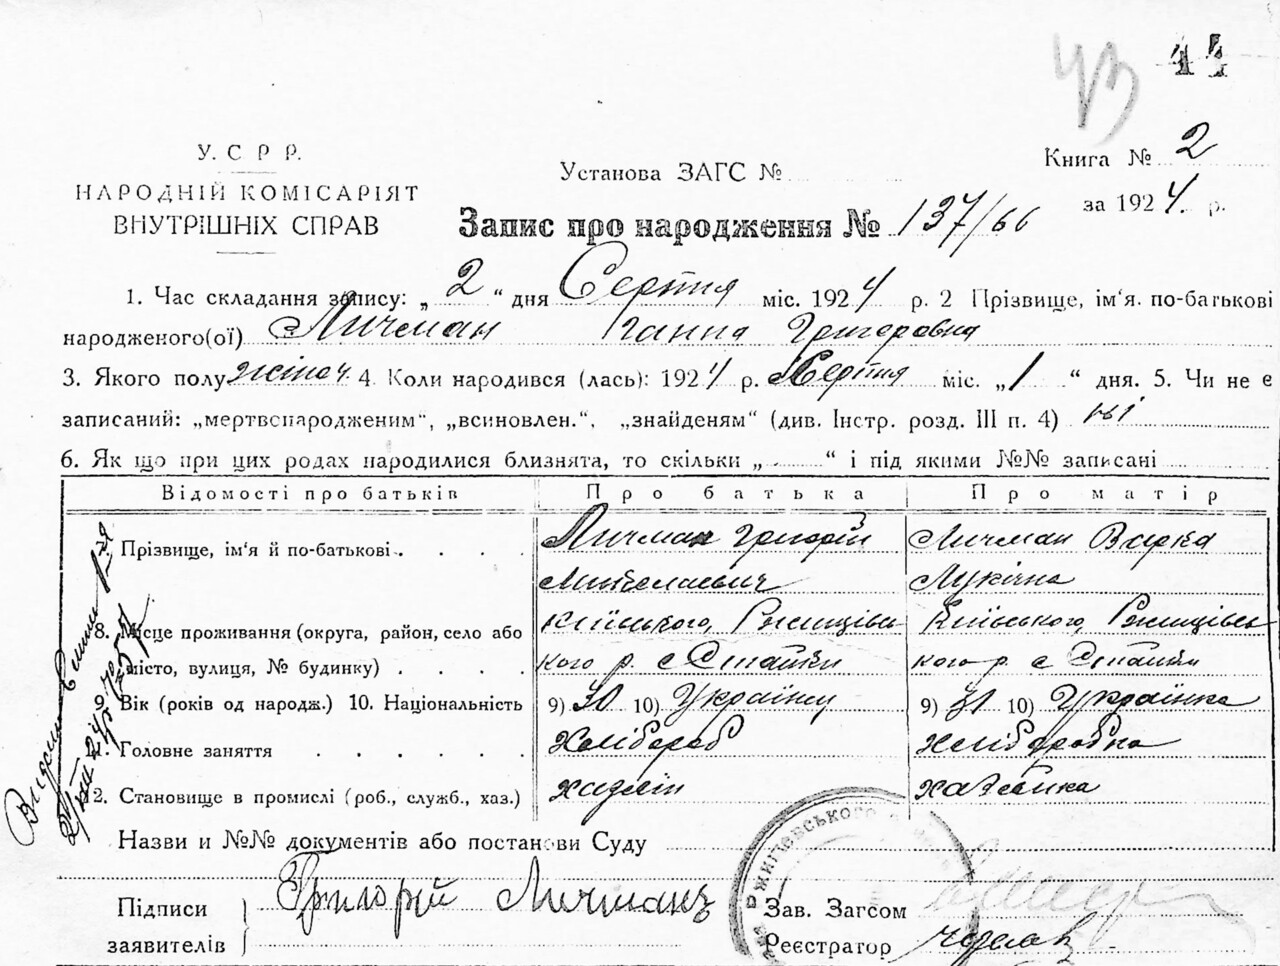 43 44
У. С Р Р.
НАРОДНІЙ КОМІСАРІЯТ
ВНУТРІШНІХ СПРАВ
Установа ЗАГС №
Книга № 2
за 1924 р.
Запис про народження № 137/66
1. Час складання запису: „ 2 “ дня Серпня міс. 1924 р. 2 Прізвище, ім'я. по-батькові
народженого(ої) Личман Ганна Григоровна
3. Якого полу жіноч. 4. Коли народився (лась): 1924 р. Серпня міс. „ 1 “ дня. 5. Чи не є
записаний: „мертвонародженим“, „всиновлен.“, „знайденям“ (див. Інстр. розд. III п. 4) ні
6. Як що при цих родах народилися близнята, то скільки „ “ і під якими №№ записані
Відомості про батьків Про батька Про матір
Прізвище, ім'я й по-батькові . . . . Личман Григорій Личман Варка
Миколаевич Лукічна
8. Місце проживання (округа, район, село або Київського, Ржищівсь Київського, Ржищівсь
місто, вулиця, № будинку) . . . . кого р. с Стайки кого р. с Стайки
9. Вік (років од народж.) 10. Національність 9) 30 10) Українец 9) 31 10) Українка
Головне заняття . . . . . Хлібороб Хліборобка
2. Становище в промислі (роб., служб., хаз.) хазяїн хазяйка
Назви и №№ документів або постанови Суду
Підписи
заявителів
Григорій Личман
Зав. Загсом
Реєстратор